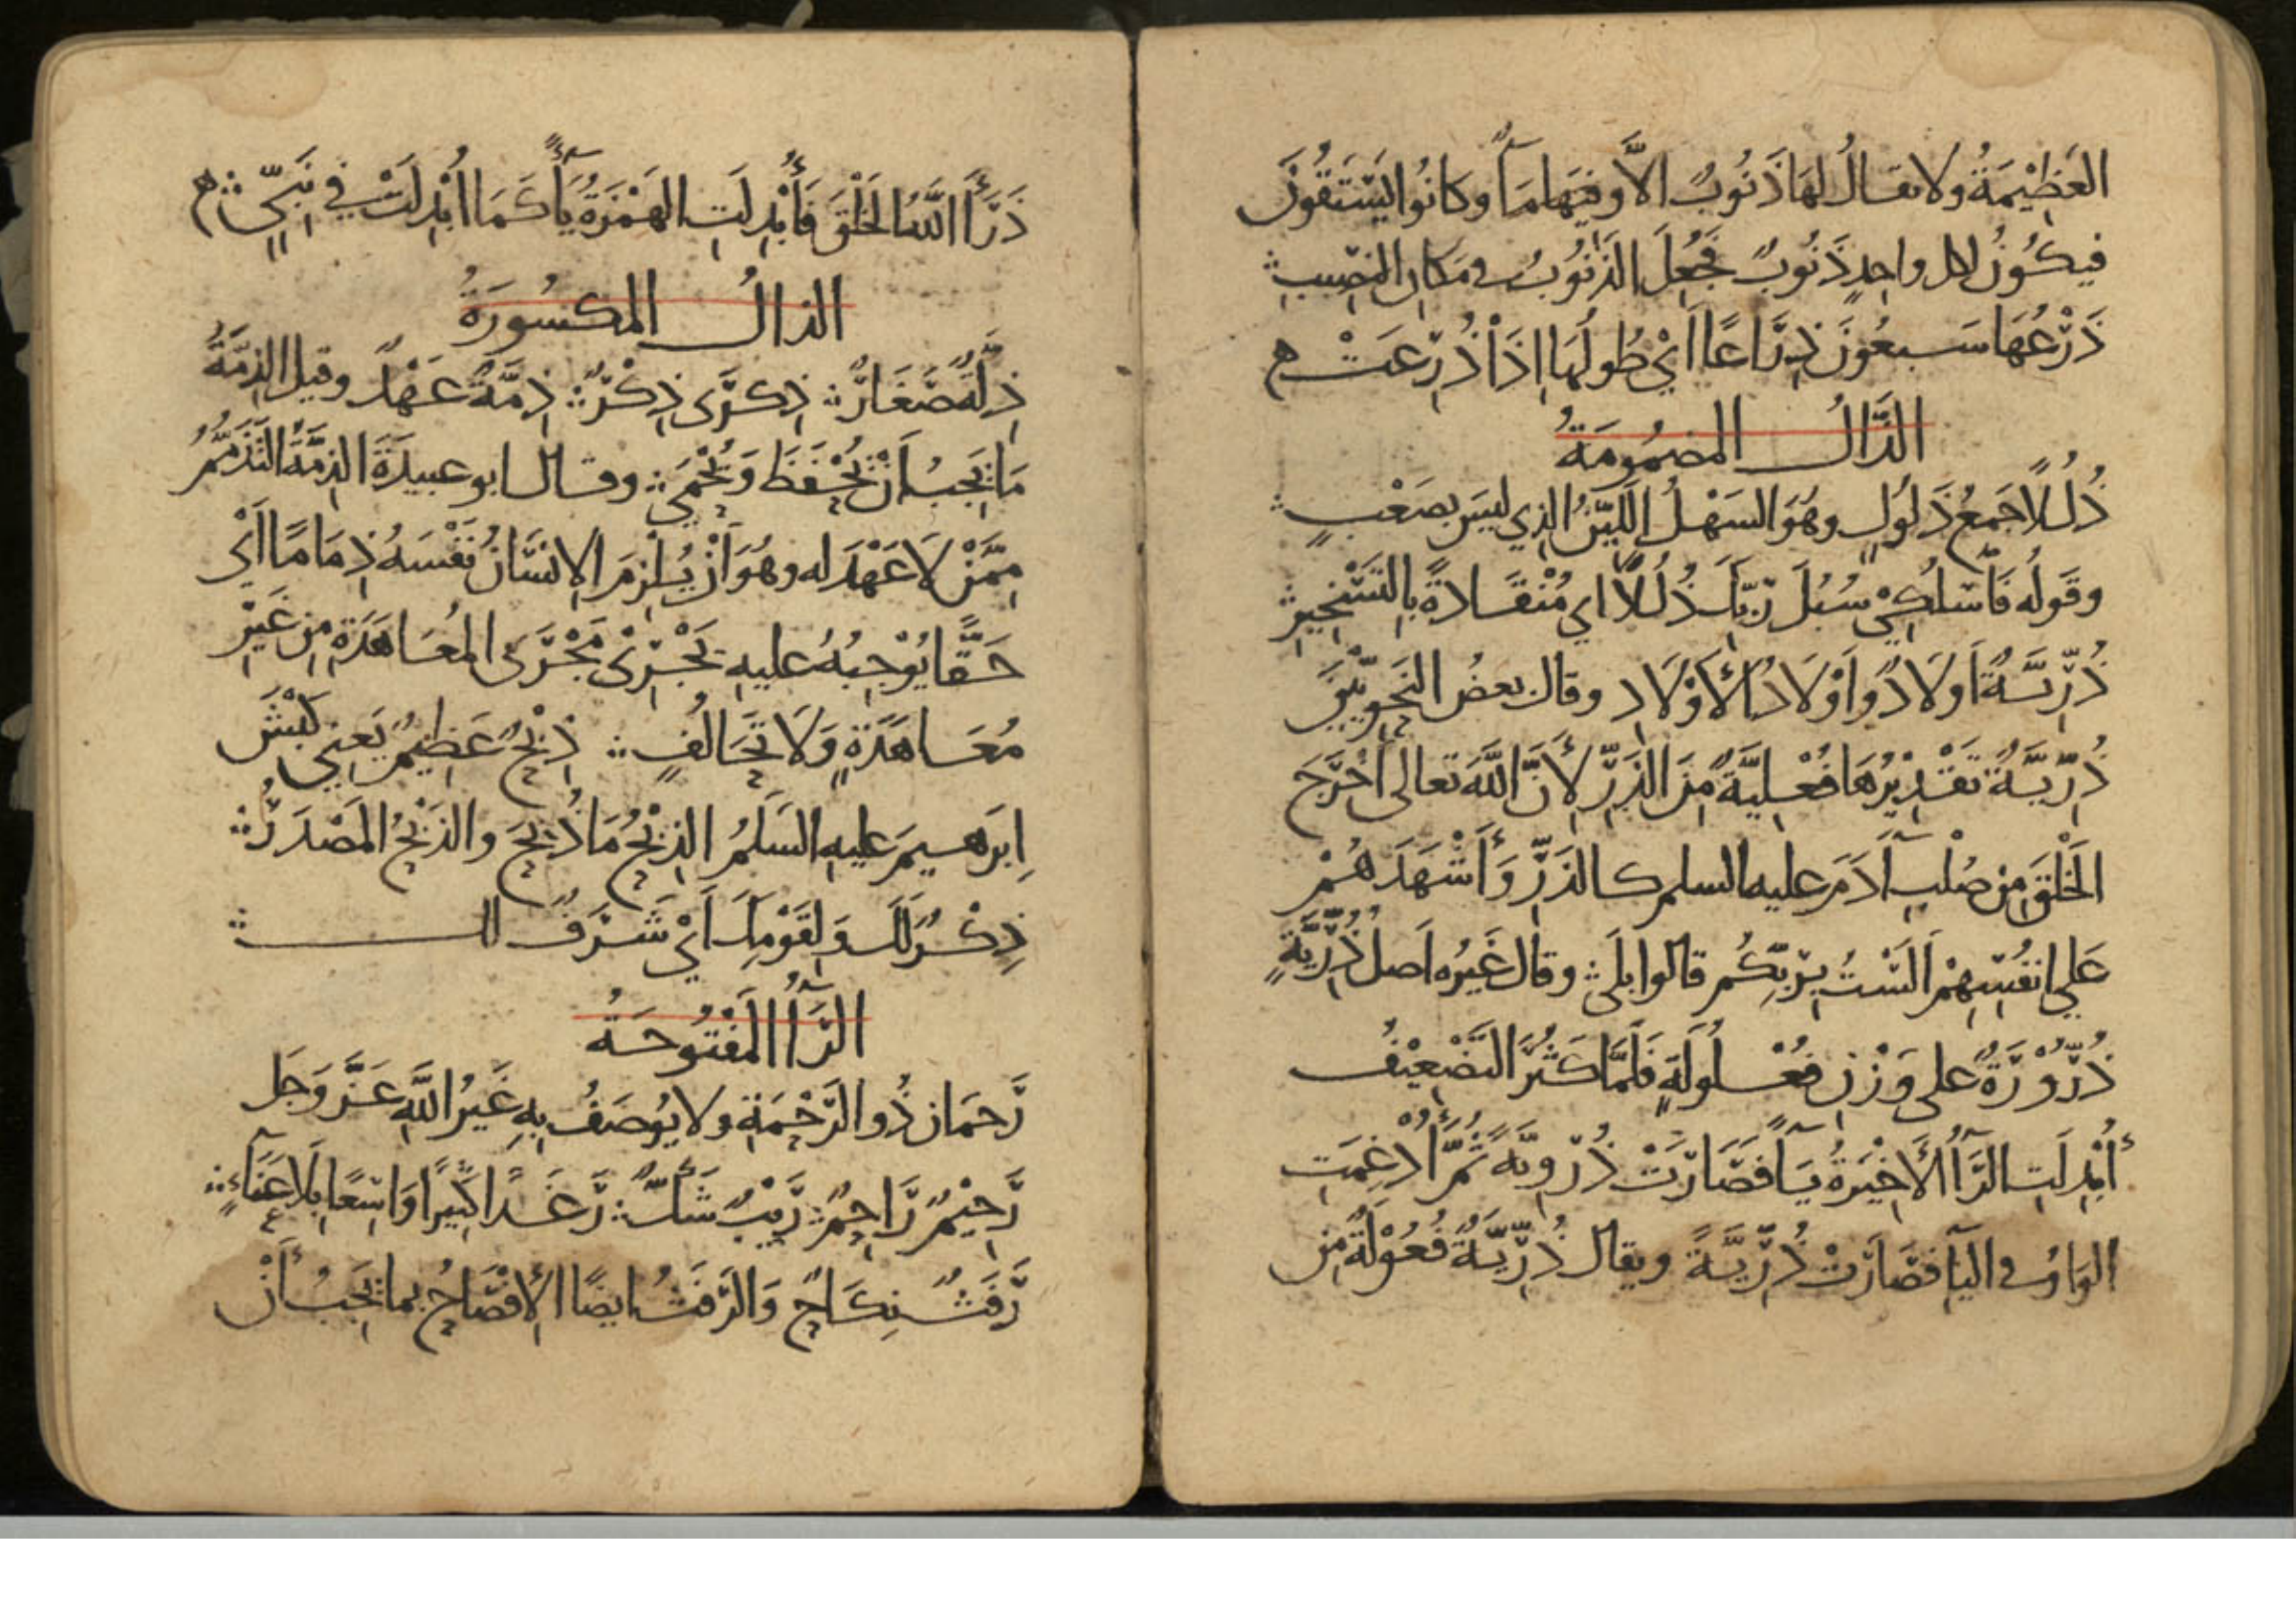 العَظِيْمَةُ ولا يقالُ لهَا ذَنُوبٌ الَّا وفيهَا مَآءٌ وكانُوا يَسْتَقُونَ
فيكُونُ لكل واحدٍ ذَنُوبٌ فَجُعِلَ الذَنُوبُ في مَكانِ النَصِيبِ
ذَرْعُهَا سَبعُونَ ذِرَاعًا اَيْ طُولُهَا اِذَا ذُرِعَتْ ه
الذَّالُ المضمُومَةُ
ذُلُلًا جَمعُ ذَلُولٍ وهُوَ السَهْلُ اللَّيِّنُ الذِي ليسَ بصَعْبٍ
وقَولُه فَاسْلُكِيْ سُبُلَ رَبِّكِ ذُلُلًا اي مُنْقَادةً بِالتَسْخِيرِ
ذُرِّيَّةٌ اَولَادٌ وَاَوْلَادُ الأَوْلَادِ وقال بعضُ النَحوِيّينَ
ذُرِّيَّةٌ تَقْدِيْرُهَا فُعْلِيَّةٌ مِنَ الذَّرِّ لأَنَّ اللَّهَ تعالى اَخْرَجَ
الخَلْقَ مِن صُلْبِ آدَمَ عليه السلم كالذَرِّ وَأَشْهَدَهُمْ
عَلى انفُسِهِمْ اَلَسْتُ بِرَبِّكُم قالوا بلَى وقال غَيرُه اَصلُ ذُرِّيَّةٍ
ذُرُّوْرَةٌ على وَزْنِ فُعْلُولَةٍ فَلَمَّا كَثُرَ التَضْعِيْفُ
أُبْدِلَتِ الرَّآءُ الأَخِيْرَةُ يَآءً فَصَارَتْ ذُرُّويَةً ثُمَّ أُدْغِمَتِ
الوَاوُ في اليَآءِ فَصَارَتْ ذُرِّيَّةً ويقال ذُرِّيَّةٌ فُعُوْلَةٌ مِن
ذَرَأَ اللَّهُ الخَلْقَ فَأُبْدِلَتِ الهَمْزَةُ يَآءً كَمَا اُبْدِلَتْ في نَبِيٍّ ه
الذالُ المكسُورَةُ
ذِلَّةٌ صَغَارٌ ذِكرَى ذِكْرٌ ذِمَّةٌ عَهْدٌ وقيل الذِمَّةُ
مَا يَجِبُ اَنْ يُحْفَظَ وَيُحْمَى وقال ابو عبيدَةَ الذِمَّةُ التَذَمُّمُ
مِمَّنْ لَا عَهْدَ له وهُوَ اَنْ يُلزِمَ الاِنسَانُ نَفْسَهُ ذِمَامًا اَيْ
حَقًّا يُوْجِبُهُ عليهِ يَجْرِيْ مَجْرَى المُعَاهَدَةِ مِن غَيْرِ
مُعَاهَدَةٍ وَلَا تَحَالُفٍ ذِبْحٌ عَظِيمٌ يَعنِي كَبْشَ
اِبرَهيمَ عليهِ السَلَمُ الذِبْحُ مَا ذُبِحَ والذَبْحُ المَصْدَرُ
ذِكْرٌ لَكَ وَلِقَوْمِكَ اَيْ شَرَفٌ لك
الرَّآءُ المَفْتُوحَةُ
رَحمَان ذُو الرَحْمَةِ ولا يوُصَفُ بِهِ غَيرُ اللَّهِ عَزَّ وَجَل
رَحِيْمٌ رَاحِمٌ رَيْبٌ شَكٌّ رَغَدًا كَثِيرًا وَاسِعًا بِلَا عَنَآءٍ
رَفَثٌ نِكَاحٌ وَالرَّفَثُ ايضًا الأِفْصَاحُ بما يَجِبُ أَنْ